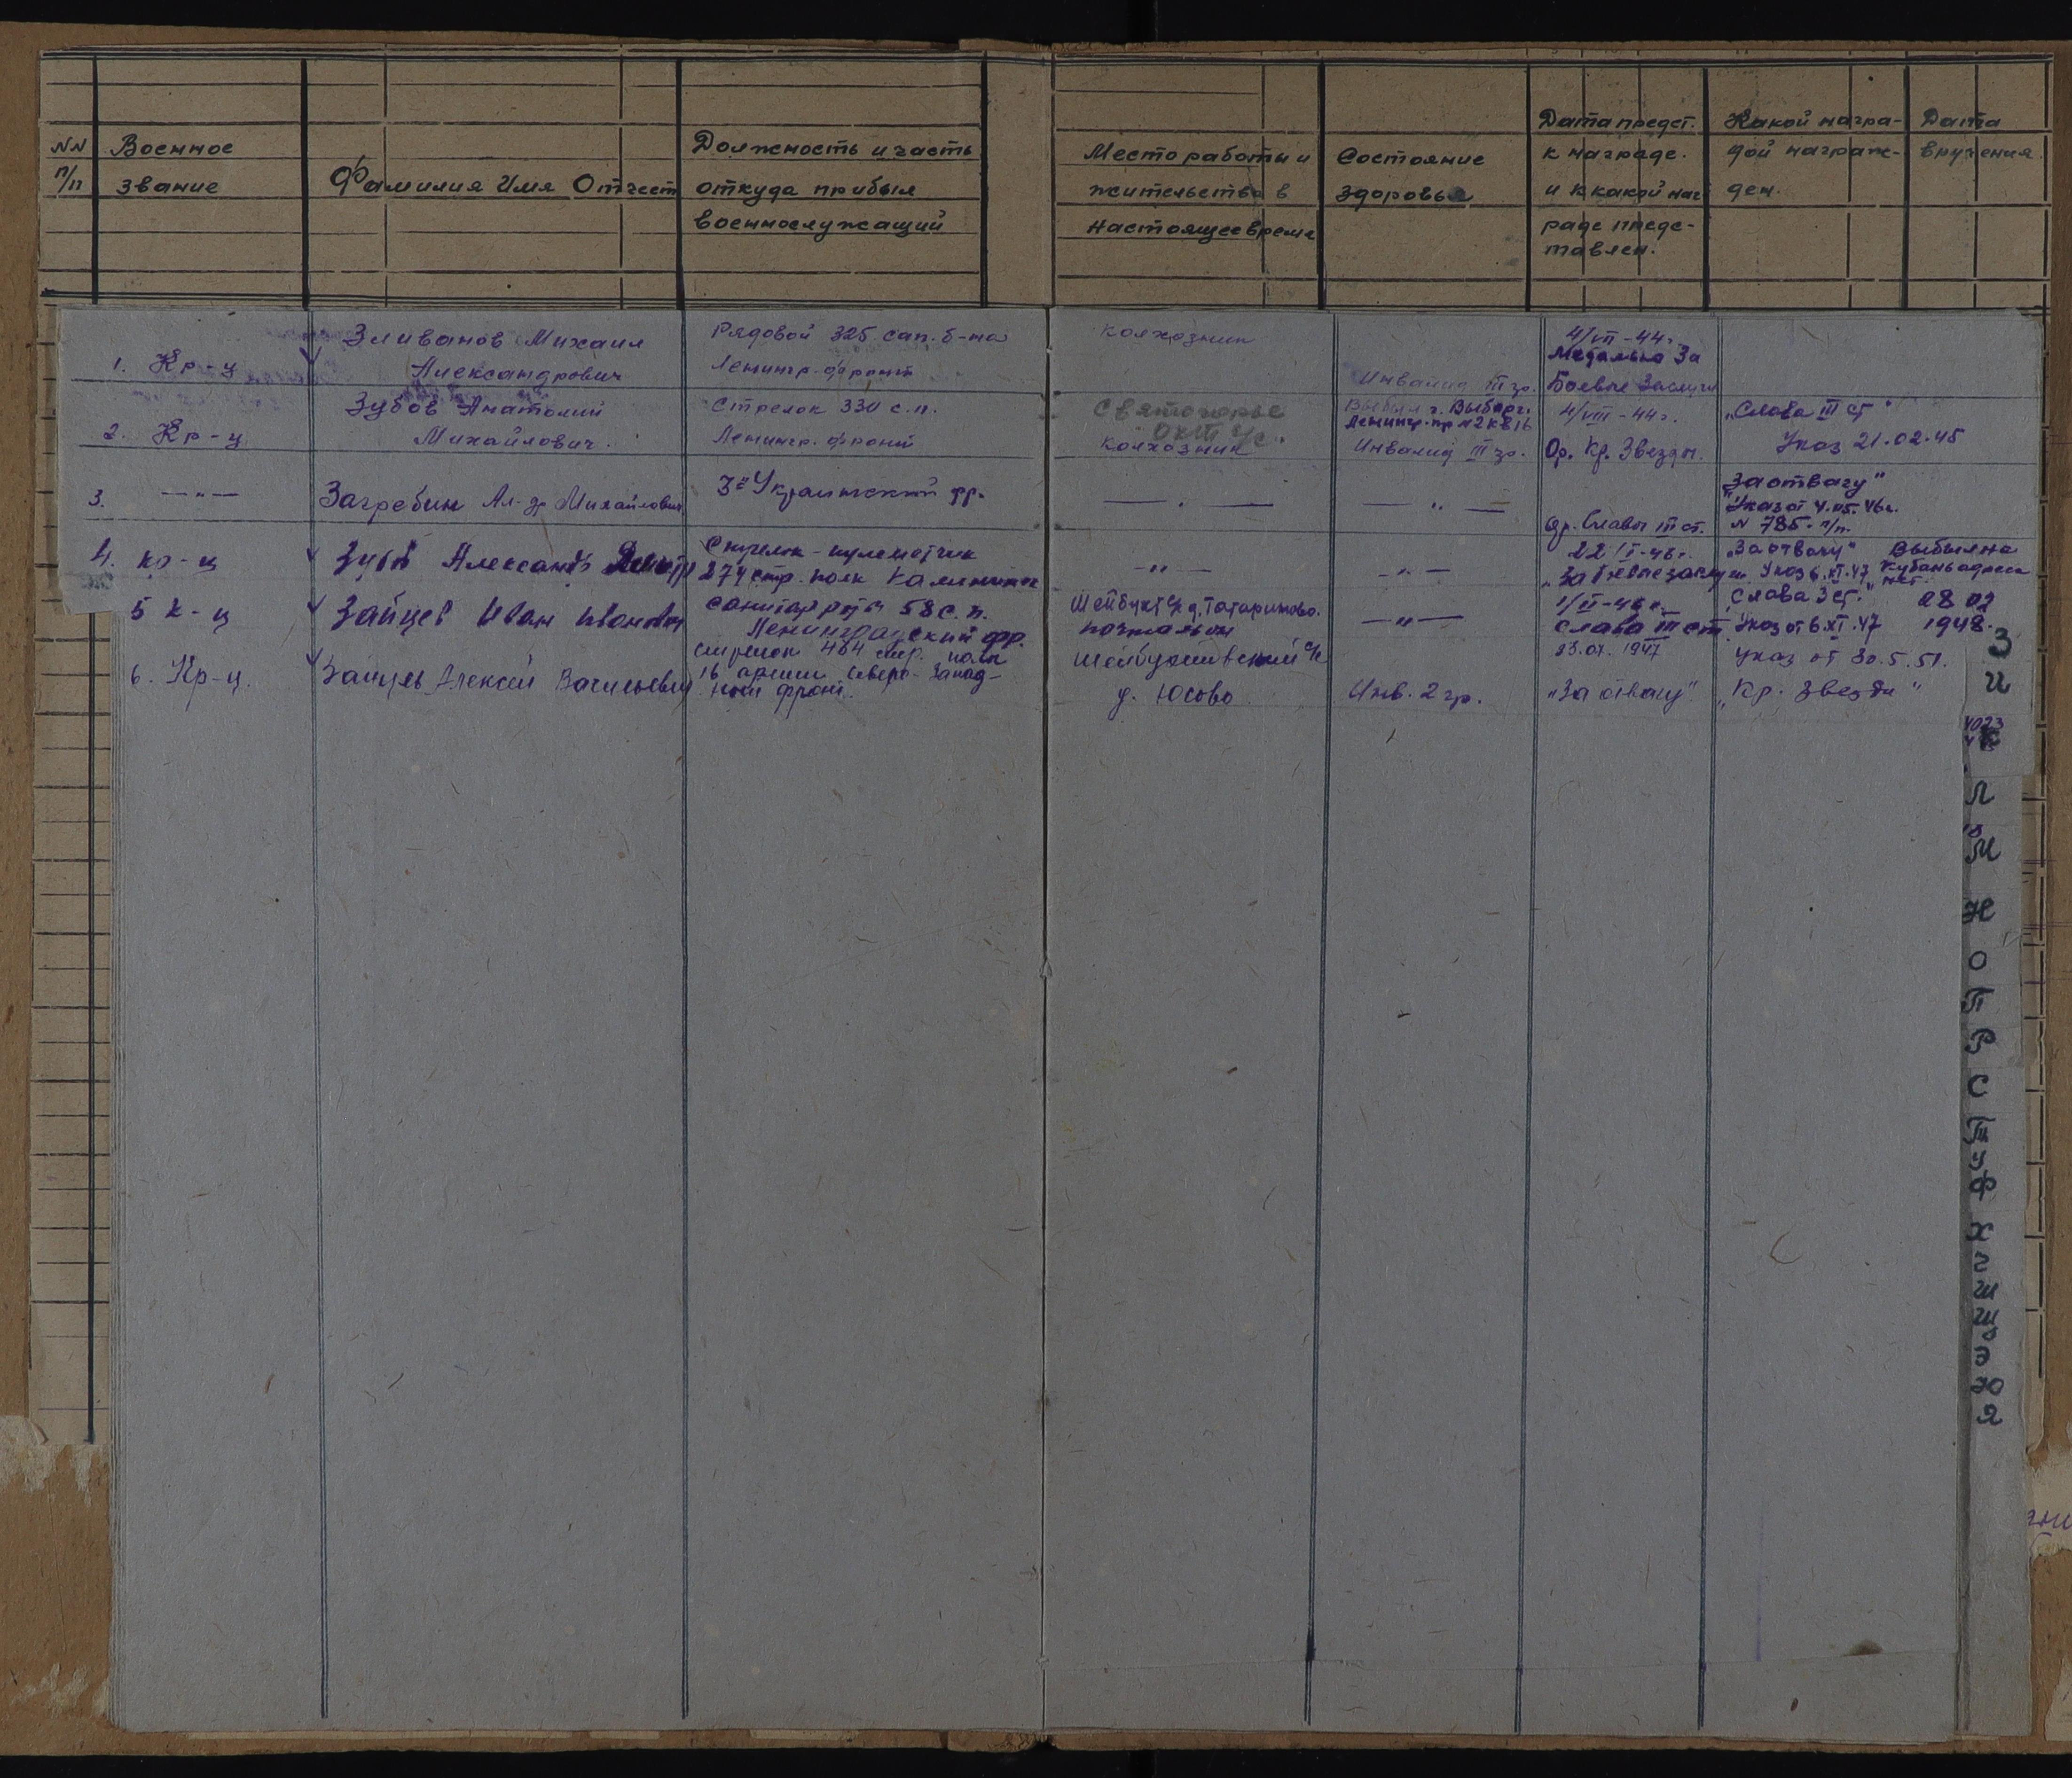 NN п/п
Военное звание
Фамилия Имя Отчест
Должность и часть
откуда прибыл
военнослужащий
Место работы и
жительства в
настоящее время
Состояние
здоровья
Дата предст.
к награде.
и к какой наг
раде предс-
тавлен.
Какой награ-
дой награж-
ден.
Дата
вручения
1. Кр-ц
Зливанов Михаил
Александрович
Рядовой 325 сап. б-на
Ленингр. фронт
колхозник
Инвалид III гр.
4/VII-44г.
Медалью За
Боевые Заслуги
2. Кр-ц
Зубов Анатолий
Михайлович.
Стрелок 330 с.п.
Ленингр. фронт
Святогорье
Окт с/с
колхозник
Выбыл г. Выборг.
Ленингр. пр N2 кв 16
Инвалид III гр.
4/VIII-44г.
Ор. Кр. Звезды.
„Слава III ст"
Указ 21.02.45
3. —"—
Загребин Ал-др Михайлович
3й Украинский фр.
— " —
— " —
Ор. Славы III ст.
„За отвагу"
Указ от 4.05.46г.
N 785. п/п.
4. кр-ц
Зубов Александр
Стрелок-пулеметчик
274 стр. полк Калининск
— " —
— " —
22/I-46г.
„За боевые заслуги
„За отвагу"
Указ 6.XI.47
Выбыл на
Кубань адреса
нет.
5 к-ц
Зайцев Иван Иванович
санитар роты 58 с.п.
Ленинградский фр.
Шейбухт с/с д. Татариново.
почтальон
— " —
1/II-46г.
Слава III ст
„Слава 3 ст."
Указ от 6.XI.47
28 02
1948.
6. Кр-ц.
Зайцев Алексей Васильевич
стрелок 464 стр. полк
16 армии Северо-Запад-
ный фронт.
Шейбухтовский с/с
д. Юсово
Инв. 2 гр.
23.07.1947
„За отвагу"
Указ от 30.5.51.
„Кр. Звезда"
З
И
К
Л
М
Н
О
П
Р
С
Т
У
Ф
Х
Ч
Ш
Щ
Э
Ю
Я